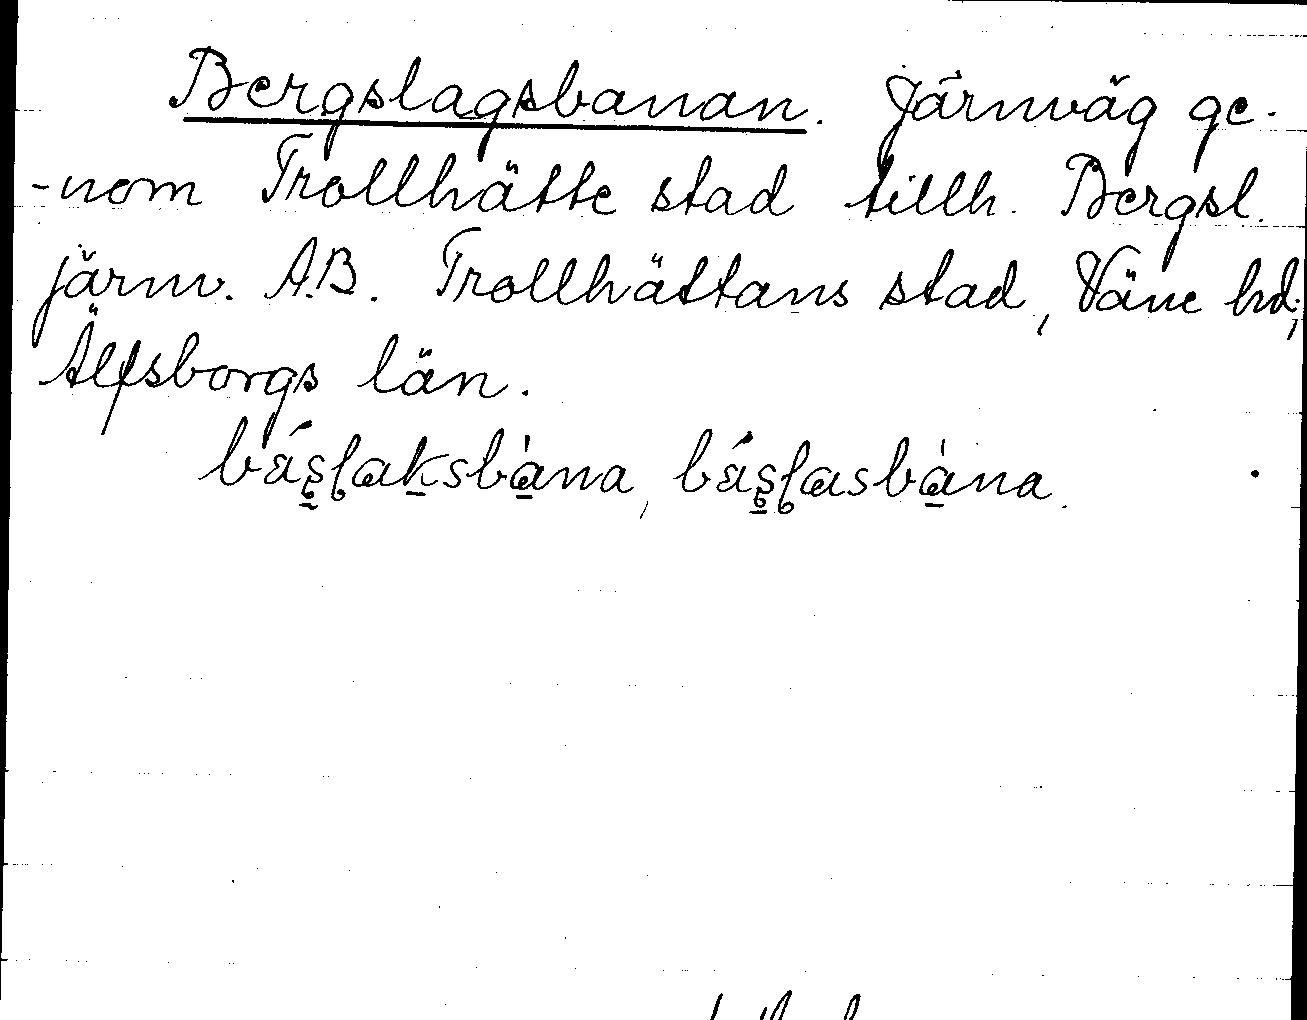 Bergslagsbanan. Järnväg ge-
-nom Trollhätte stad tillh. Bergsl.
järnv. A.B. Trollhättans stad, Väne hd,
Älfsborgs län.